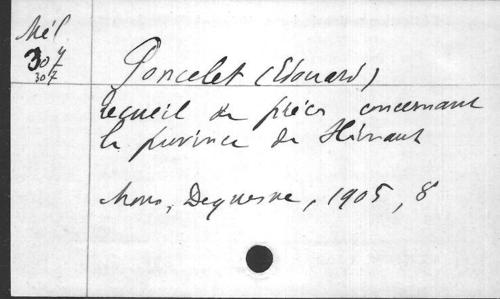 Mél
307
307
Poncelet (Edouard)
recueil de pièces concernant
la province de Hainaut
Mons, Dequesne, 1905, 8°